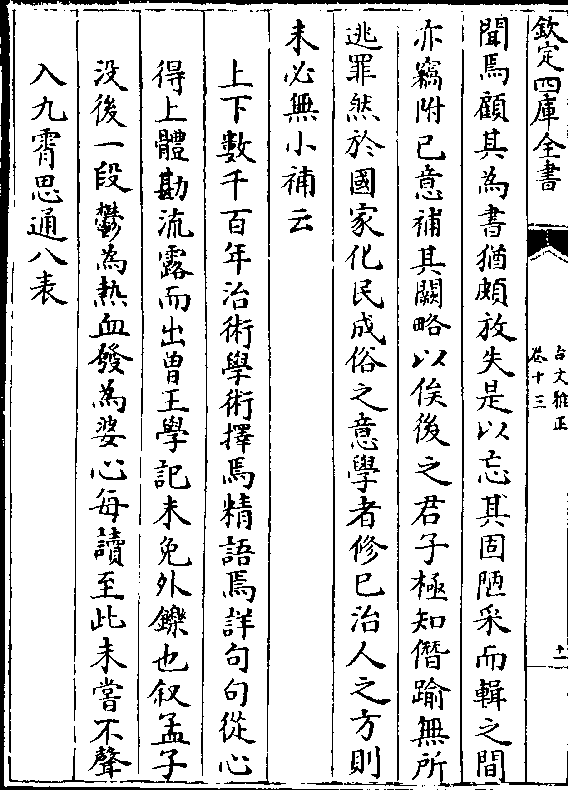 欽定四庫全書
古文雅正
卷十三
十二
聞焉顧其為書猶頗放失是以忘其固陋采而輯之間
亦竊附己意補其闕略以俟後之君子極知僭踰無所
逃罪然於國家化民成俗之意學者修已治人之方則
未必無小補云
上下數千百年治術學術擇焉精語焉詳句句從心
得上體勘流露而出曾王學記未免外鑠也叙孟子
沒後一段鬱為熱血發為婆心每讀至此未嘗不聲
入九霄思通八表